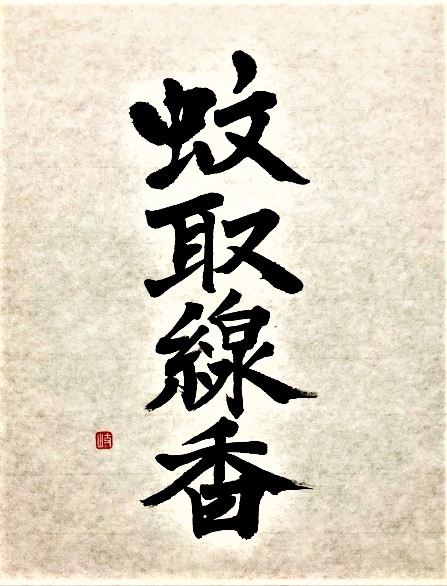 蚊取線香
岐